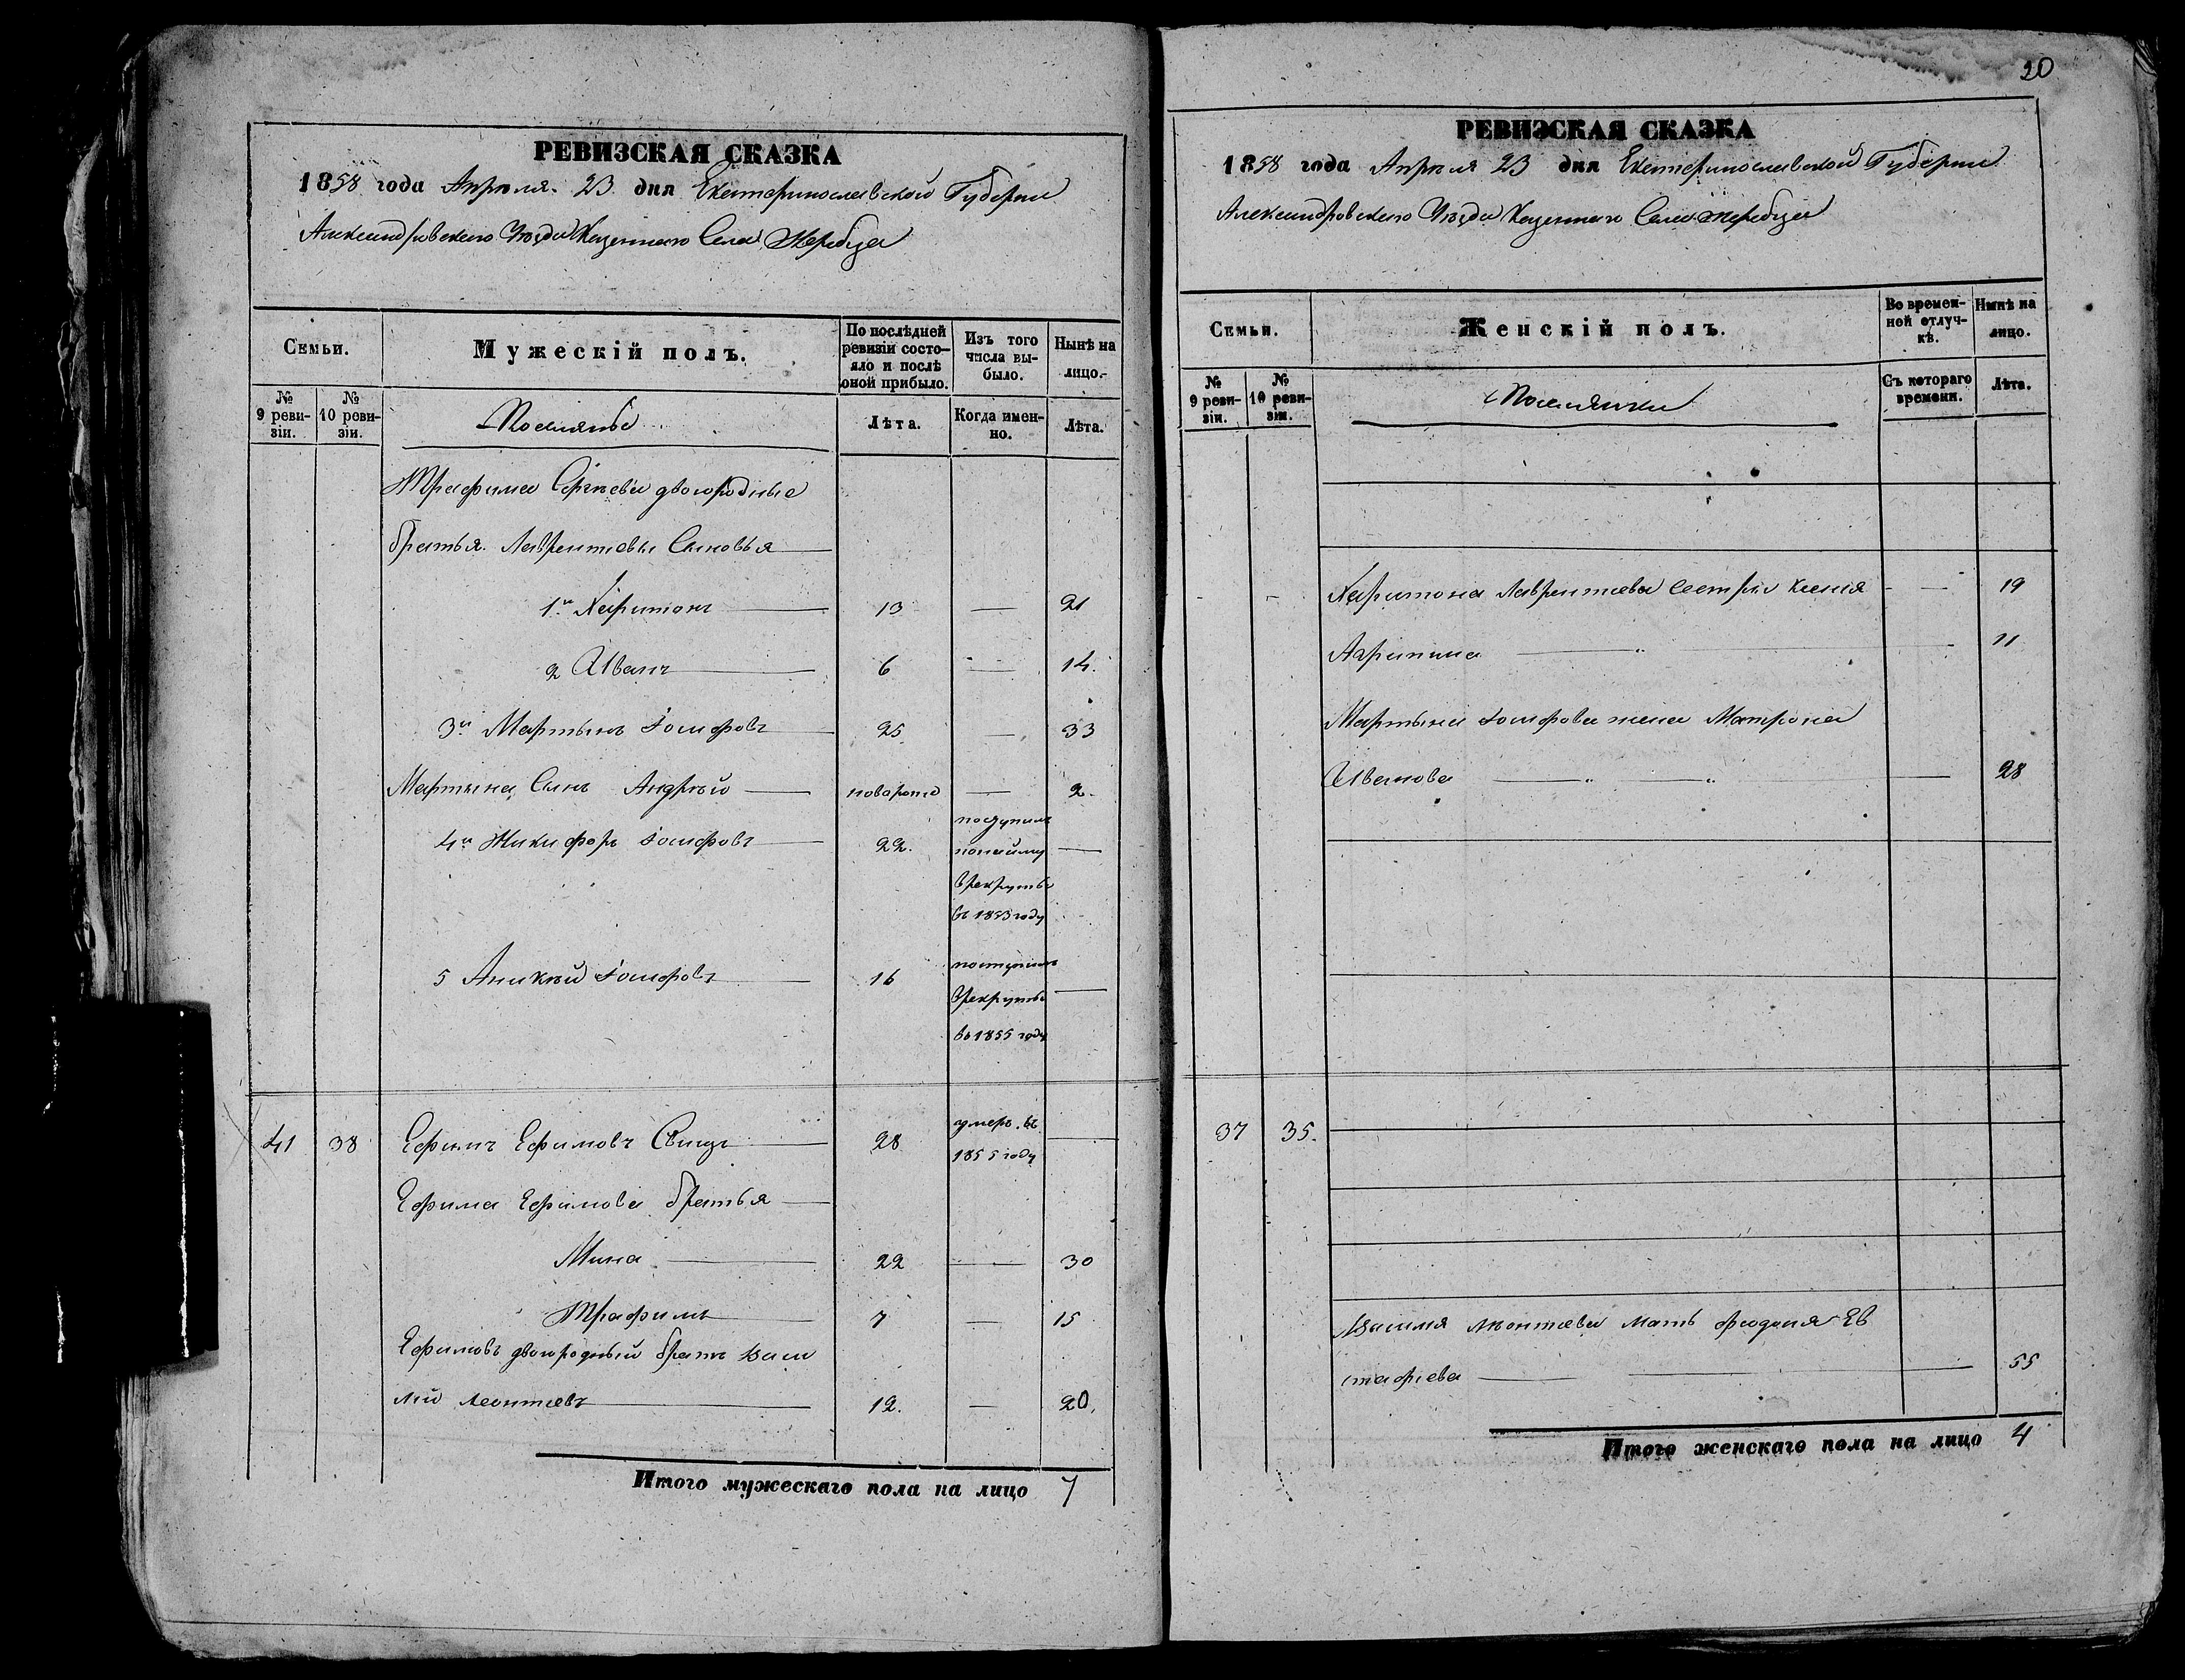 РЕВИЗСКАЯ СКАЗКА
1858 года Апреля 23 дня Екатеринославской Губерни
Александровского Уѣзда Казенного Села Жеребца
Семьи.
Мужескій полъ.
По послѣдней ревизіи состо-
яло и послѣ
оной прибыло.
Изъ того
числа вы-
было.
Нынѣ на
лицо.
№
9 реви-
зіи.
№
10 реви-
зіи.
Поселяне
Лѣта.
Когда имен-
но.
Лѣта.
Трафима Сергѣева двоюродные
братья Лаврентіевы Сыновья
1й Харитонъ 13 — 21
2 Иванъ 6 — 14
3й Мартынъ Іосифовъ 25 — 33
Мартына Сынъ Андрѣй — 2
4й Никифоръ Іосифовъ 22 поступилъ
понайму
Врекруты
въ 1853 году
5 Аникѣй Іосифовъ 16 поступилъ
Врекруты
въ 1855 году
41 38 Ефимъ Ефимовъ 28 умеръ въ
1855 году
Ефима Ефимова братья
Мина 22 — 30
Трафимъ 7 — 15
Ефимовъ двоюродный братъ Васи
лій Леонтіевъ 12 — 20
Итого мужескаго пола на лицо 7
20
РЕВИЗСКАЯ СКАЗКА
1858 года Апреля 23 дня Екатеринославской Губерни
Александровского Уѣзда Казенного Села Жеребца
Семьи.
Женскій полъ.
Во времен-
ной отлуч-
кѣ.
Нынѣ на
лицо.
№
9 реви-
зіи.
№
10 реви-
зіи.
Поселянки
Съ котораго
времени.
Лѣта.
Харитона Лаврентіева сестры Ксенія — 19
Агрипина — 11
Мартына Іосифова жена Матрона
Иванова — 28
37 35
Василія Леонтіева мать Феодосія Ев
стафіева — 55
Итого женскаго пола на лицо 4